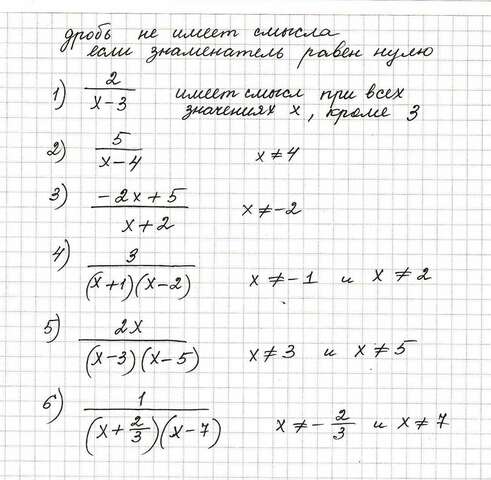 дробь не имеет смысла
если знаменатель равен нулю
1) 2/(x-3) имеет смысл при всех
значениях x, кроме 3
2) 5/(x-4) x≠4
3) (-2x+5)/(x+2) x≠-2
4) 3/((x+1)(x-2)) x≠-1 и x≠2
5) 2x/((x-3)(x-5)) x≠3 и x≠5
6) 1/((x+2/3)(x-7)) x≠-2/3 и x≠7